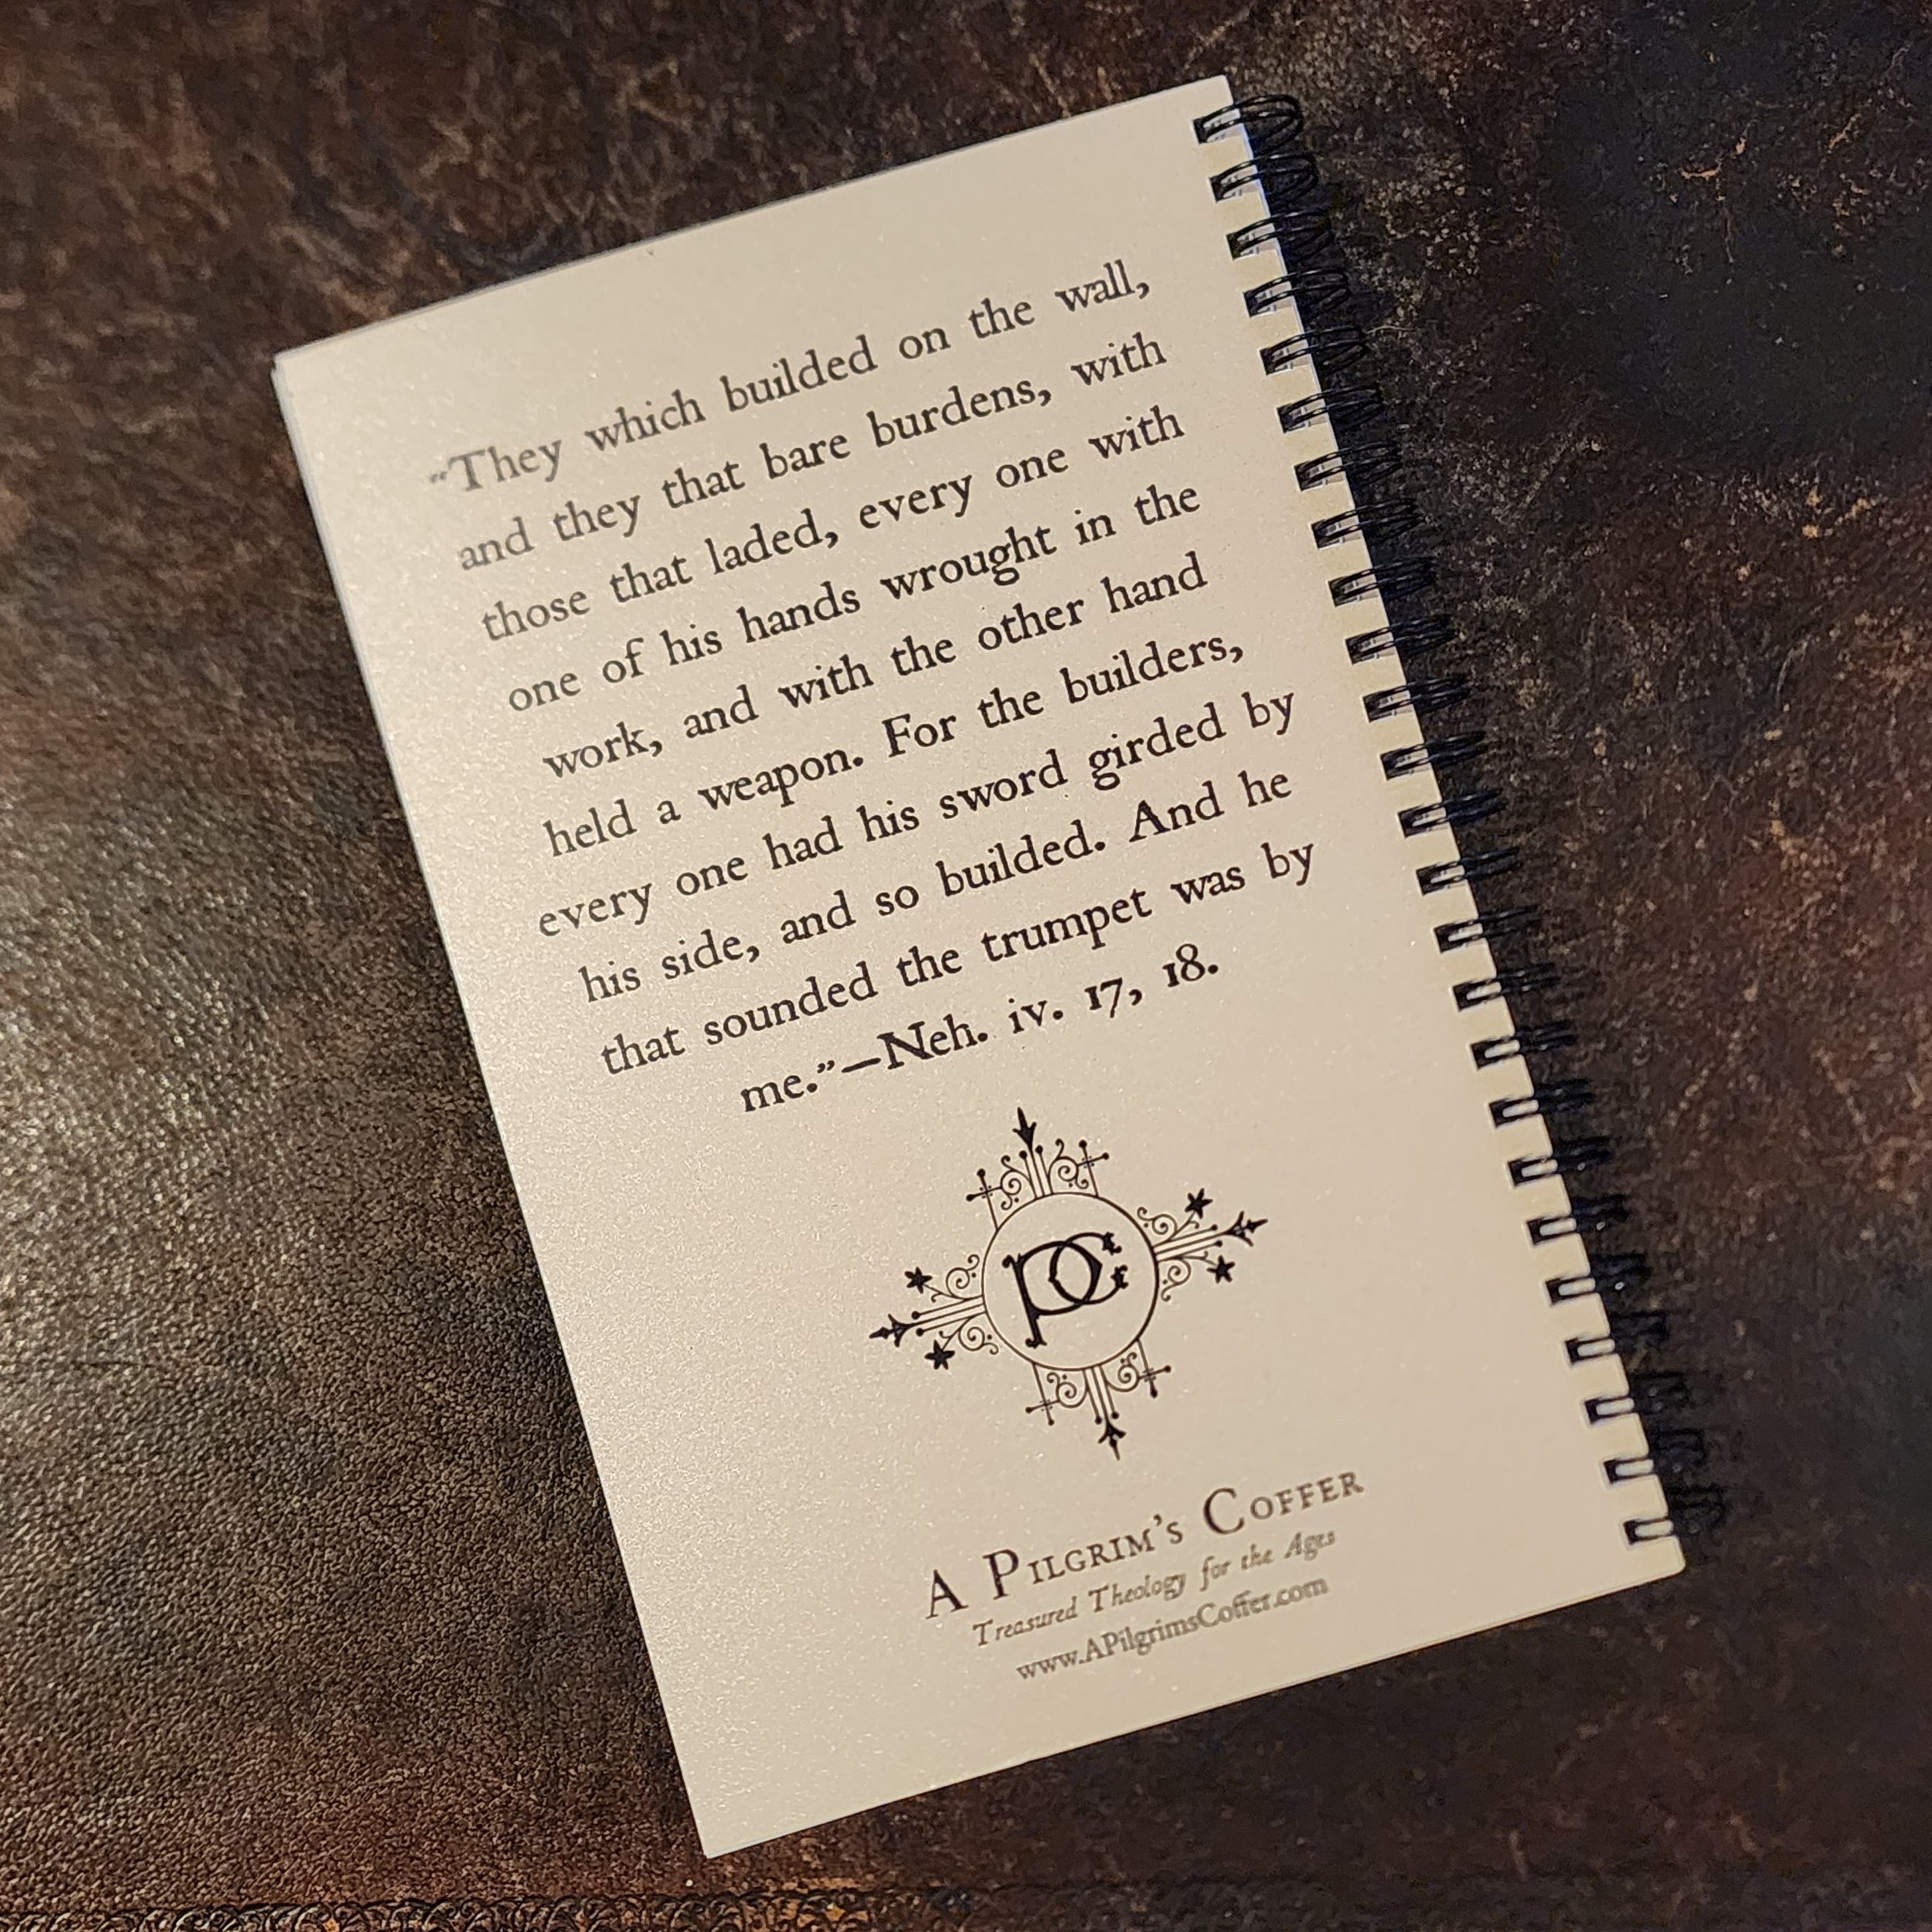 “They which builded on the wall,
and they that bare burdens, with
those that laded, every one with
one of his hands wrought in the
work, and with the other hand
held a weapon. For the builders,
every one had his sword girded by
his side, and so builded. And he
that sounded the trumpet was by
me.”—Neh. iv. 17, 18.
PC
A Pilgrim’s Coffer
Treasured Theology for the Ages
www.APilgrimsCoffer.com